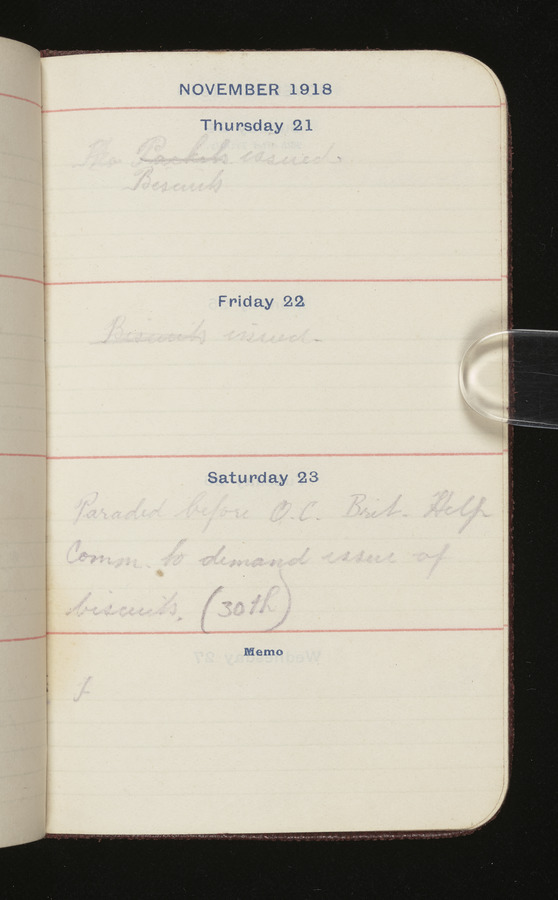 NOVEMBER 1918
Thursday 21
No Packets issued.
Biscuits
Friday 22
Biscuits issued.
Saturday 23
Paraded before O.C. Brit. Help
Comm. to demand issue of
biscuits. (30th)
Memo
Wednesday 27